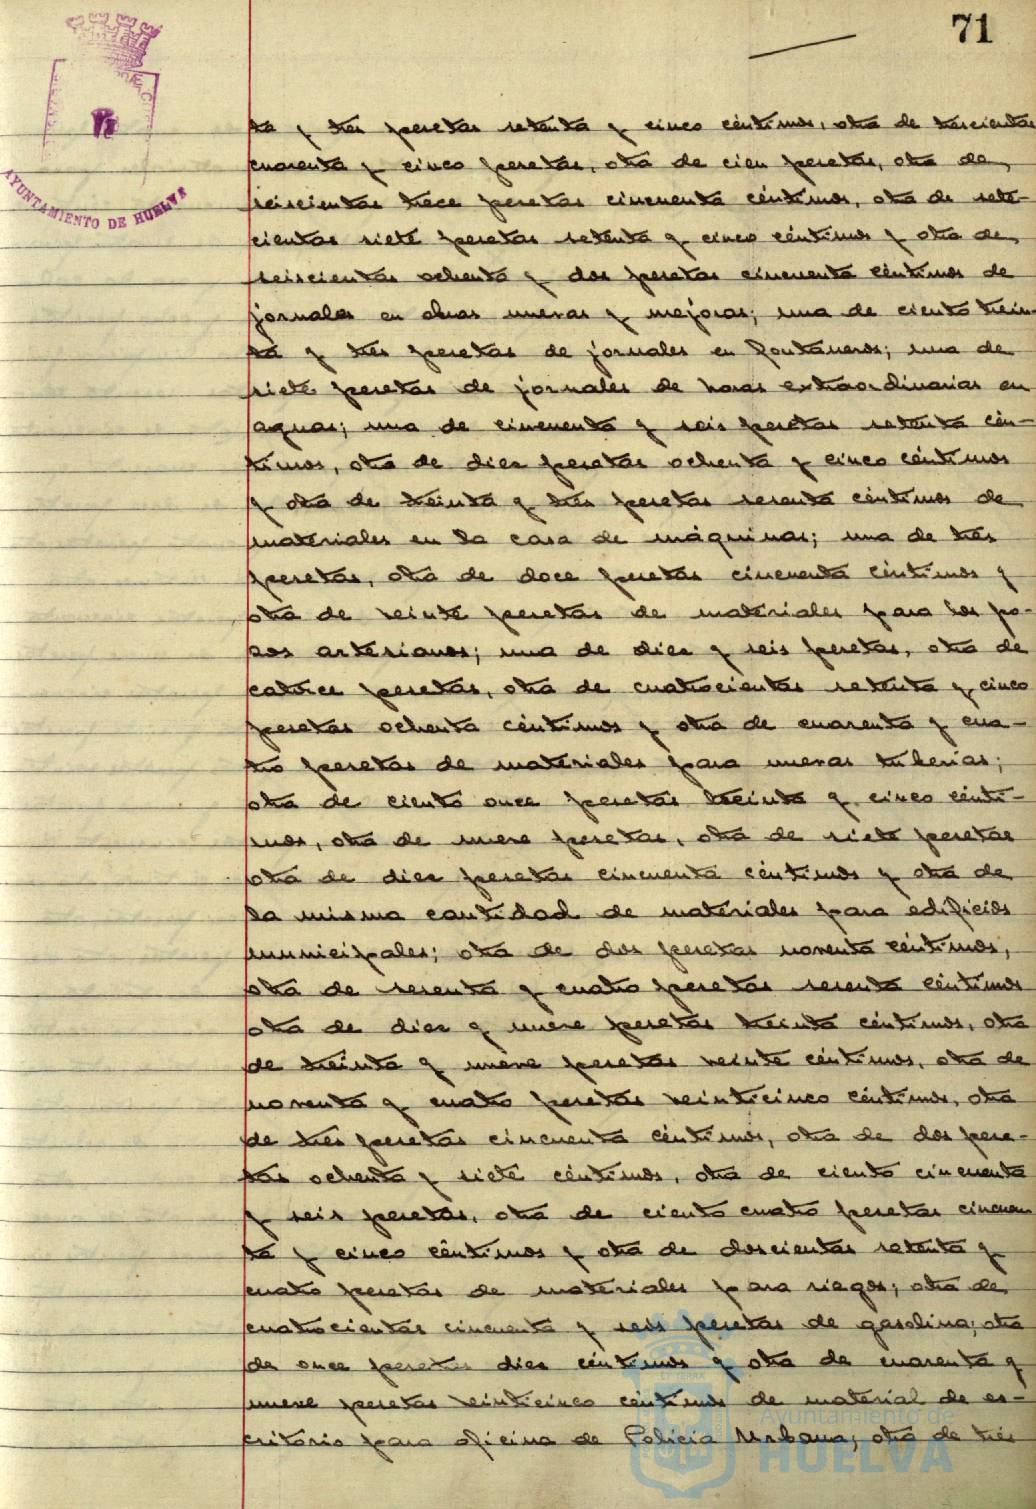 71
AYUNTAMIENTO DE HUELVA
ta y tres pesetas setenta y cinco céntimos, otra de trescientas
cuarenta y cinco pesetas, otra de cien pesetas, otra de
seiscientas trece pesetas cincuenta céntimos, otra de sete-
cientas siete pesetas setenta y cinco céntimos y otra de
seiscientas ochenta y dos pesetas cincuenta céntimos de
jornales en obras nuevas y mejoras; una de ciento trein-
ta y tres pesetas de jornales en fontaneros; una de
siete pesetas de jornales de horas extraordinarias en
aguas; una de cincuenta y seis pesetas setenta cén-
timos, otra de diez pesetas ochenta y cinco céntimos
y otra de treinta y tres pesetas sesenta céntimos de
materiales en la casa de máquinas; una de tres
pesetas, otra de doce pesetas cincuenta céntimos y
otra de veinte pesetas de materiales para los po-
zos artesianos; una de diez y seis pesetas, otra de
catorce pesetas, otra de cuatrocientas setenta y cinco
pesetas ochenta céntimos y otra de cuarenta y cua-
tro pesetas de materiales para nuevas tuberías;
otra de ciento once pesetas treinta y cinco cénti-
mos, otra de nueve pesetas, otra de siete pesetas
otra de diez pesetas cincuenta céntimos y otra de
la misma cantidad de materiales para edificios
municipales; otra de dos pesetas noventa céntimos,
otra de sesenta y cuatro pesetas sesenta céntimos
otra de diez y nueve pesetas treinta céntimos, otra
de treinta y nueve pesetas veinte céntimos, otra de
noventa y cuatro pesetas veinticinco céntimos, otra
de tres pesetas cincuenta céntimos, otra de dos pese-
tas ochenta y siete céntimos, otra de ciento cincuenta
y seis pesetas, otra de ciento cuatro pesetas cincuen
ta y cinco céntimos y otra de doscientas setenta y
cuatro pesetas de materiales para riegos; otra de
cuatrocientas cincuenta y seis pesetas de gasolina; otra
de once pesetas diez céntimos y otra de cuarenta y
nueve pesetas veinticinco céntimos de material de es-
critorio para oficina de Policía Urbana; otra de tres
Ayuntamiento de
HUELVA